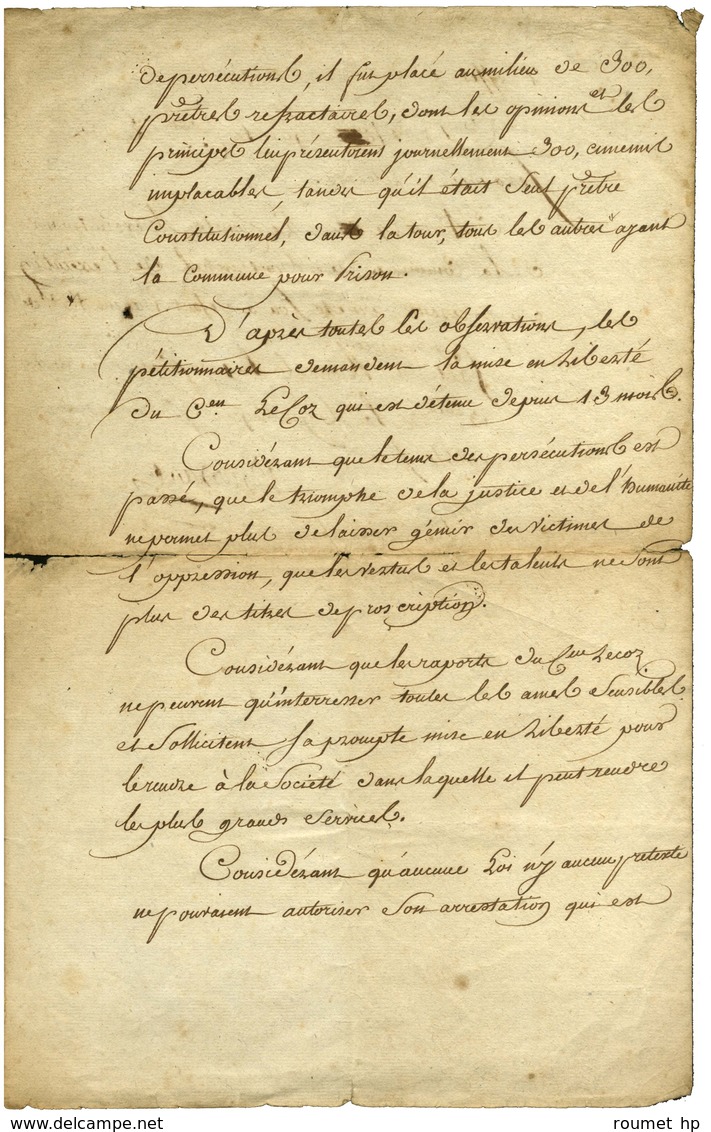 de persécutions, il fut placé au milieu de 300,
prêtres refractaires, dont les opinions et les
principes lui présentoient journellement 300, ennemis
implacables, tandis qu'il était seul prêtre
Constitutionnel, dans la tour, tous les autres ayant
la Commune pour Prison.
D'après toutes ces observations, les
pétitionnaires demandent la mise en Liberté
du Cen LeCoz qui est détenu depuis 13 mois.
Considérant que le tems des persécutions est
passé, que le triomphe de la justice et de l'humanité
ne permet plus de laisser gémir des victimes de
l'oppression, que les vertus et les talents ne sont
plus des titres de proscription.
Considérant que les raports du Cen Lecoz
ne peuvent qu'interresser toutes les ames sensibles
et sollicitent sa prompte mise en Liberté pour
le rendre à la Société dans laquelle il peut rendre
les plus grands services.
Considérant qu'aucune Loi n'y aucun pretexte
ne pouvaient autoriser son arrestation qui est
roumet hp